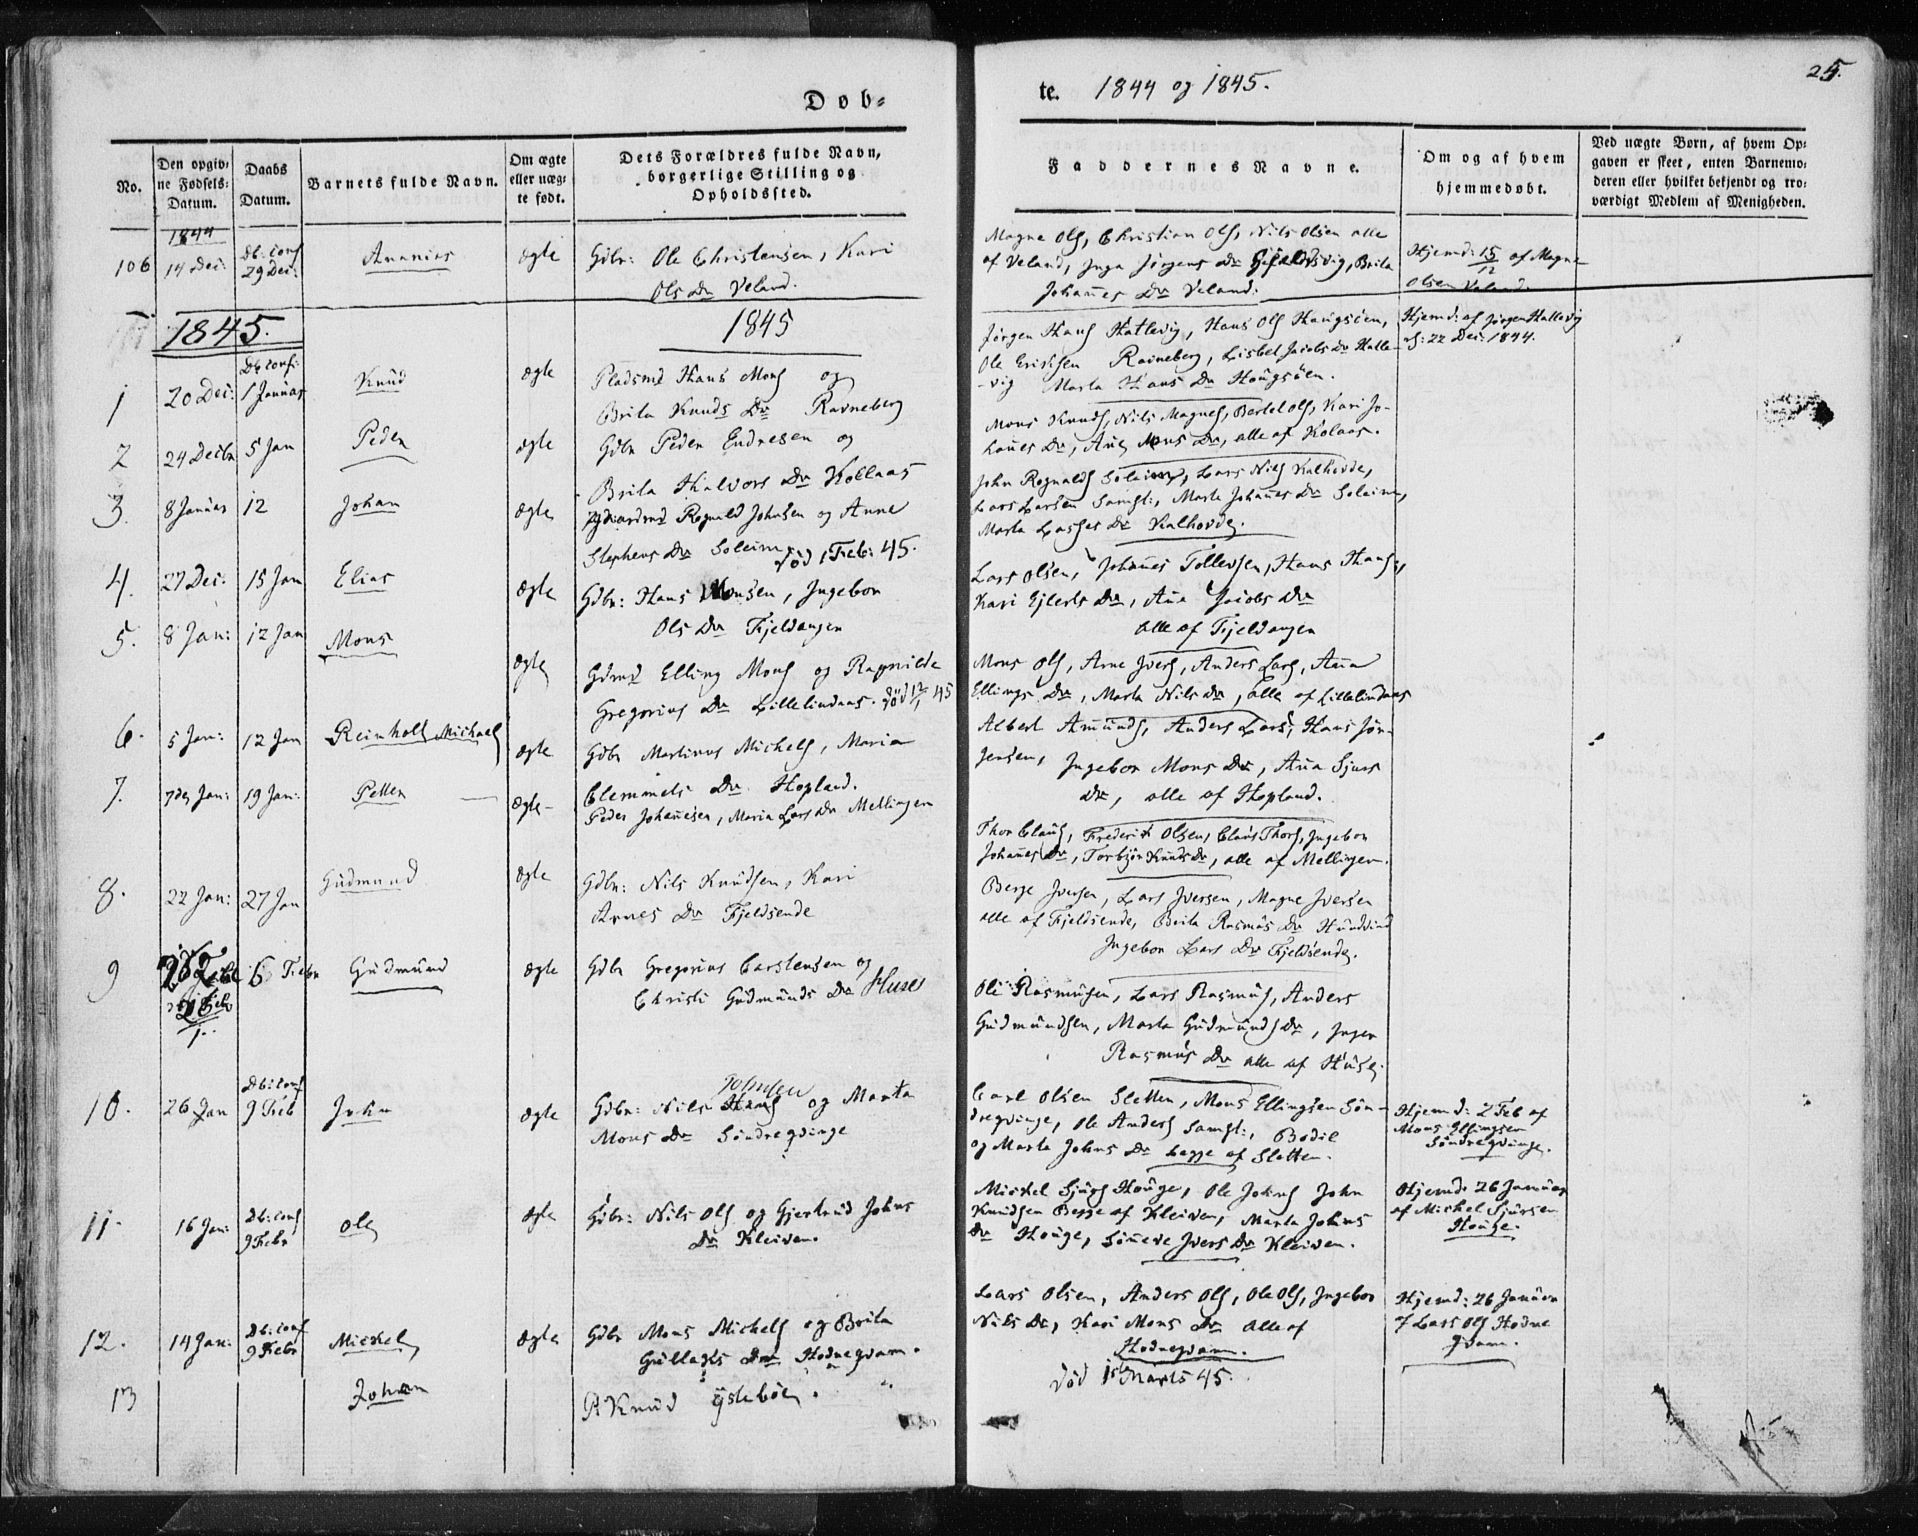 Døb-
No.
Den opgiv-
ne Fødsels-
Datum.
Daabs
Datum.
Barnets fulde Navn.
Om ægte
eller uæg-
te født.
Dets Forældres fulde Navn,
borgerlige Stilling og
Opholdssted.
1844
106 14 Dec: Db: conf 29 Dec: Ananias ægte Gdbr: Ole Christensen, Kari
Ols Dr Veland.
1845. 1845
1 20 Dec: Db conf: 1 Januar Knud ægte Pladsmd Hans Mons og
Brita Knuds Dr Ravneberg
2 24 Decbr 5 Jan Peder ægte Gdbr Peder Endresen og
Brita Halvors Dr Kollaas
3. 8 Januar 12 Johan ægte Rognald Johnsen og Anne
Stephens Dr Soleim død 1 Feb: 45.
4. 27 Dec: 15 Jan Elias ægte Gdbr: Hans Monsen, Ingebor
Ols Dr Fjeldangen
5. 8 Jan: 12 Jan Mons ægte Gdmd Elling Mons og Ragnilde
Gregorius Dr Lillelindaas. død 45
6. 5 Jan: 12 Jan Reinholt Michael ægte Gdbr Martinus Michels, Maria
Clemmets Dr Hopland.
7. 7de Jan: 19 Jan: Petter ægte- Peder Johannesen, Maria Lars Dr Mellingen
8. 22 Jan: 27 Jan Gudmund ægte Gdbr: Nils Knudsen, Kari
Arnes Dr Fjeldsende
9 6 Febr Gudmund ægte Gdbr Gregorius Carstensen og
Christi Gudmunds Dr Huse
10. 26 Jan Db: conf 9 Feb John ægte Gdbr: Nils Hans Johnsen og Marta
Mons Dr Søndreqvinge
11. 16 Jan: Db: conf 9 Febr Ole ægte Gdbr: Nils Ols og Gjertrud Johns
Dr Kleiven.
12. 14 Jan: Db: conf 9 Febr Mickel ægte Gdbr Mons Michels og Brita
Gullages Dr Hodneqvam.
13 Johan Knud Ystebøe.
te. 1844 og 1845.
25.
Faddernes Navne.
Om og af hvem
hjemmedøbt.
Ved uægte Børn, af hvem Op-
gaven er skeet, enten Barnemo-
deren eller hvilket bekjendt og tro-
værdigt Medlem af Menigheden.
Magne Ols, Christian Ols, Nils Olsen alle
af Veland, Inga Jørgens Dr, Brita
Johannes Dr Veland.
Hjemd: 15/12 af Magne
Olsen Veland.
Jørgen Hans Hatlevig, Hans Ols Haugsøen,
Ole Ericksen Ravneberg, Lisbet Jacobs Dr Hatle-
-vig Marta Hans Dr Hougsøen.
Hjemd: af Jørgen Hatlevig
d: 22 Dec: 1844.
Mons Knuds, Nils Magnes, Bertel Ols, Kari Jo-
hannes Dr, Ane Mons Dr, alle af Kolaas.
John Rognalds Soleim, Lars Nils Kalhovde,
Lars Larsen Samst:, Marta Johannes Dr Soleim,
Marta Lasses Dr Kalhovde.
Lars Olsen, Johannes Tollevsen, Hans Hans,
Kari Ejlerts Dr, Ana Jacobs Dr
alle af Fjeldangen
Mons Ols, Arne Ivers, Anders Lars, Anna
Ellings Dr, Marta Nils Dr, alle af Lillelindaas
Albert Amunds, Anders Lars, Hans Jør-
gensen, Ingebor Mons Dr, Ana Sjurs
Dr, alle af Hopland.
Thor Claus, Frederik Olsen, Claus Thors, Ingebor
Johannes Dr, Torbjør Knuds Dr, alle af Mellingen.
Berge Iversen, Lars Iversen, Magne Iversen
alle af Fjeldsende, Berita Rasmus Dr Hundvind
Ingebor Lars Dr Fjeldsende.
Ole Rasmusen, Lars Rasmus, Anders
Gudmundsen, Marta Gudmunds Dr, Inger
Rasmus Dr alle af Huse.
Carl Olsen Sletten, Mons Ellingsen Søn-
dreqvinge, Ole Anders Samst:, Bodil
og Marta Johns Dr begge af Sletten.
Hjemd: 2 Feb af
Mons Ellingsen
Søndreqvinge.
Mickel Sjurs Houge, Ole Johns John
Knudsen Begge af Kleiven, Marta Johns
Dr Houge, Synneve Ivers Dr Kleiven.
Hjemd: 26 Januar
af Mickel Sjursen
Houge.
Lars Olsen, Anders Ols, Ole Ols, Ingebor
Nils Dr, Kari Mons Dr alle af
Hodneqvam.
Hjemd: 26 Januar
af Lars Ols Hodne
qvam.
Død 1ste Marts 45.